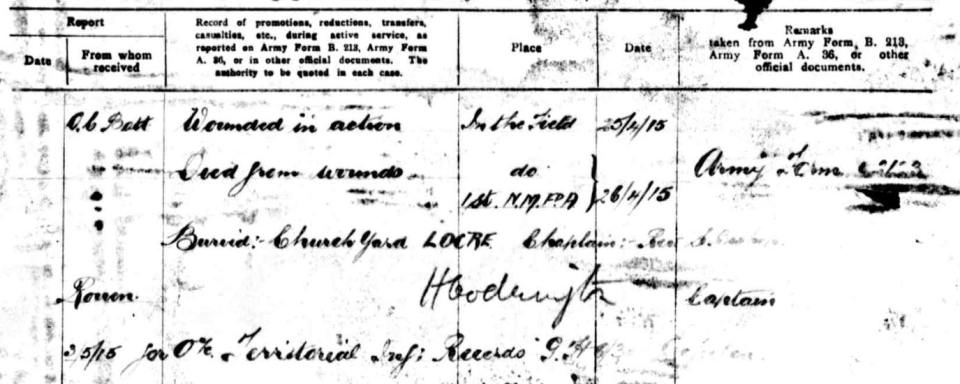 Report
Date
From whom received
Record of promotions, reductions, transfers,
casualties, etc., during active service, as
reported on Army Form B. 213, Army Form
A. 36, or in other official documents. The
authority to be quoted in each case.
Place
Date
Remarks
taken from Army Form B. 213,
Army Form A. 36, or other
official documents.
O.C Batt Wounded in action In the Field 25/4/15
Died from wounds do
1st. N.M.F.A } 26/4/15
Army Form
Buried:- Church Yard LOCRE Chaplain:- Rev
Rouen. Captain
5/15 for O i/c Territorial Inf: Records G.H